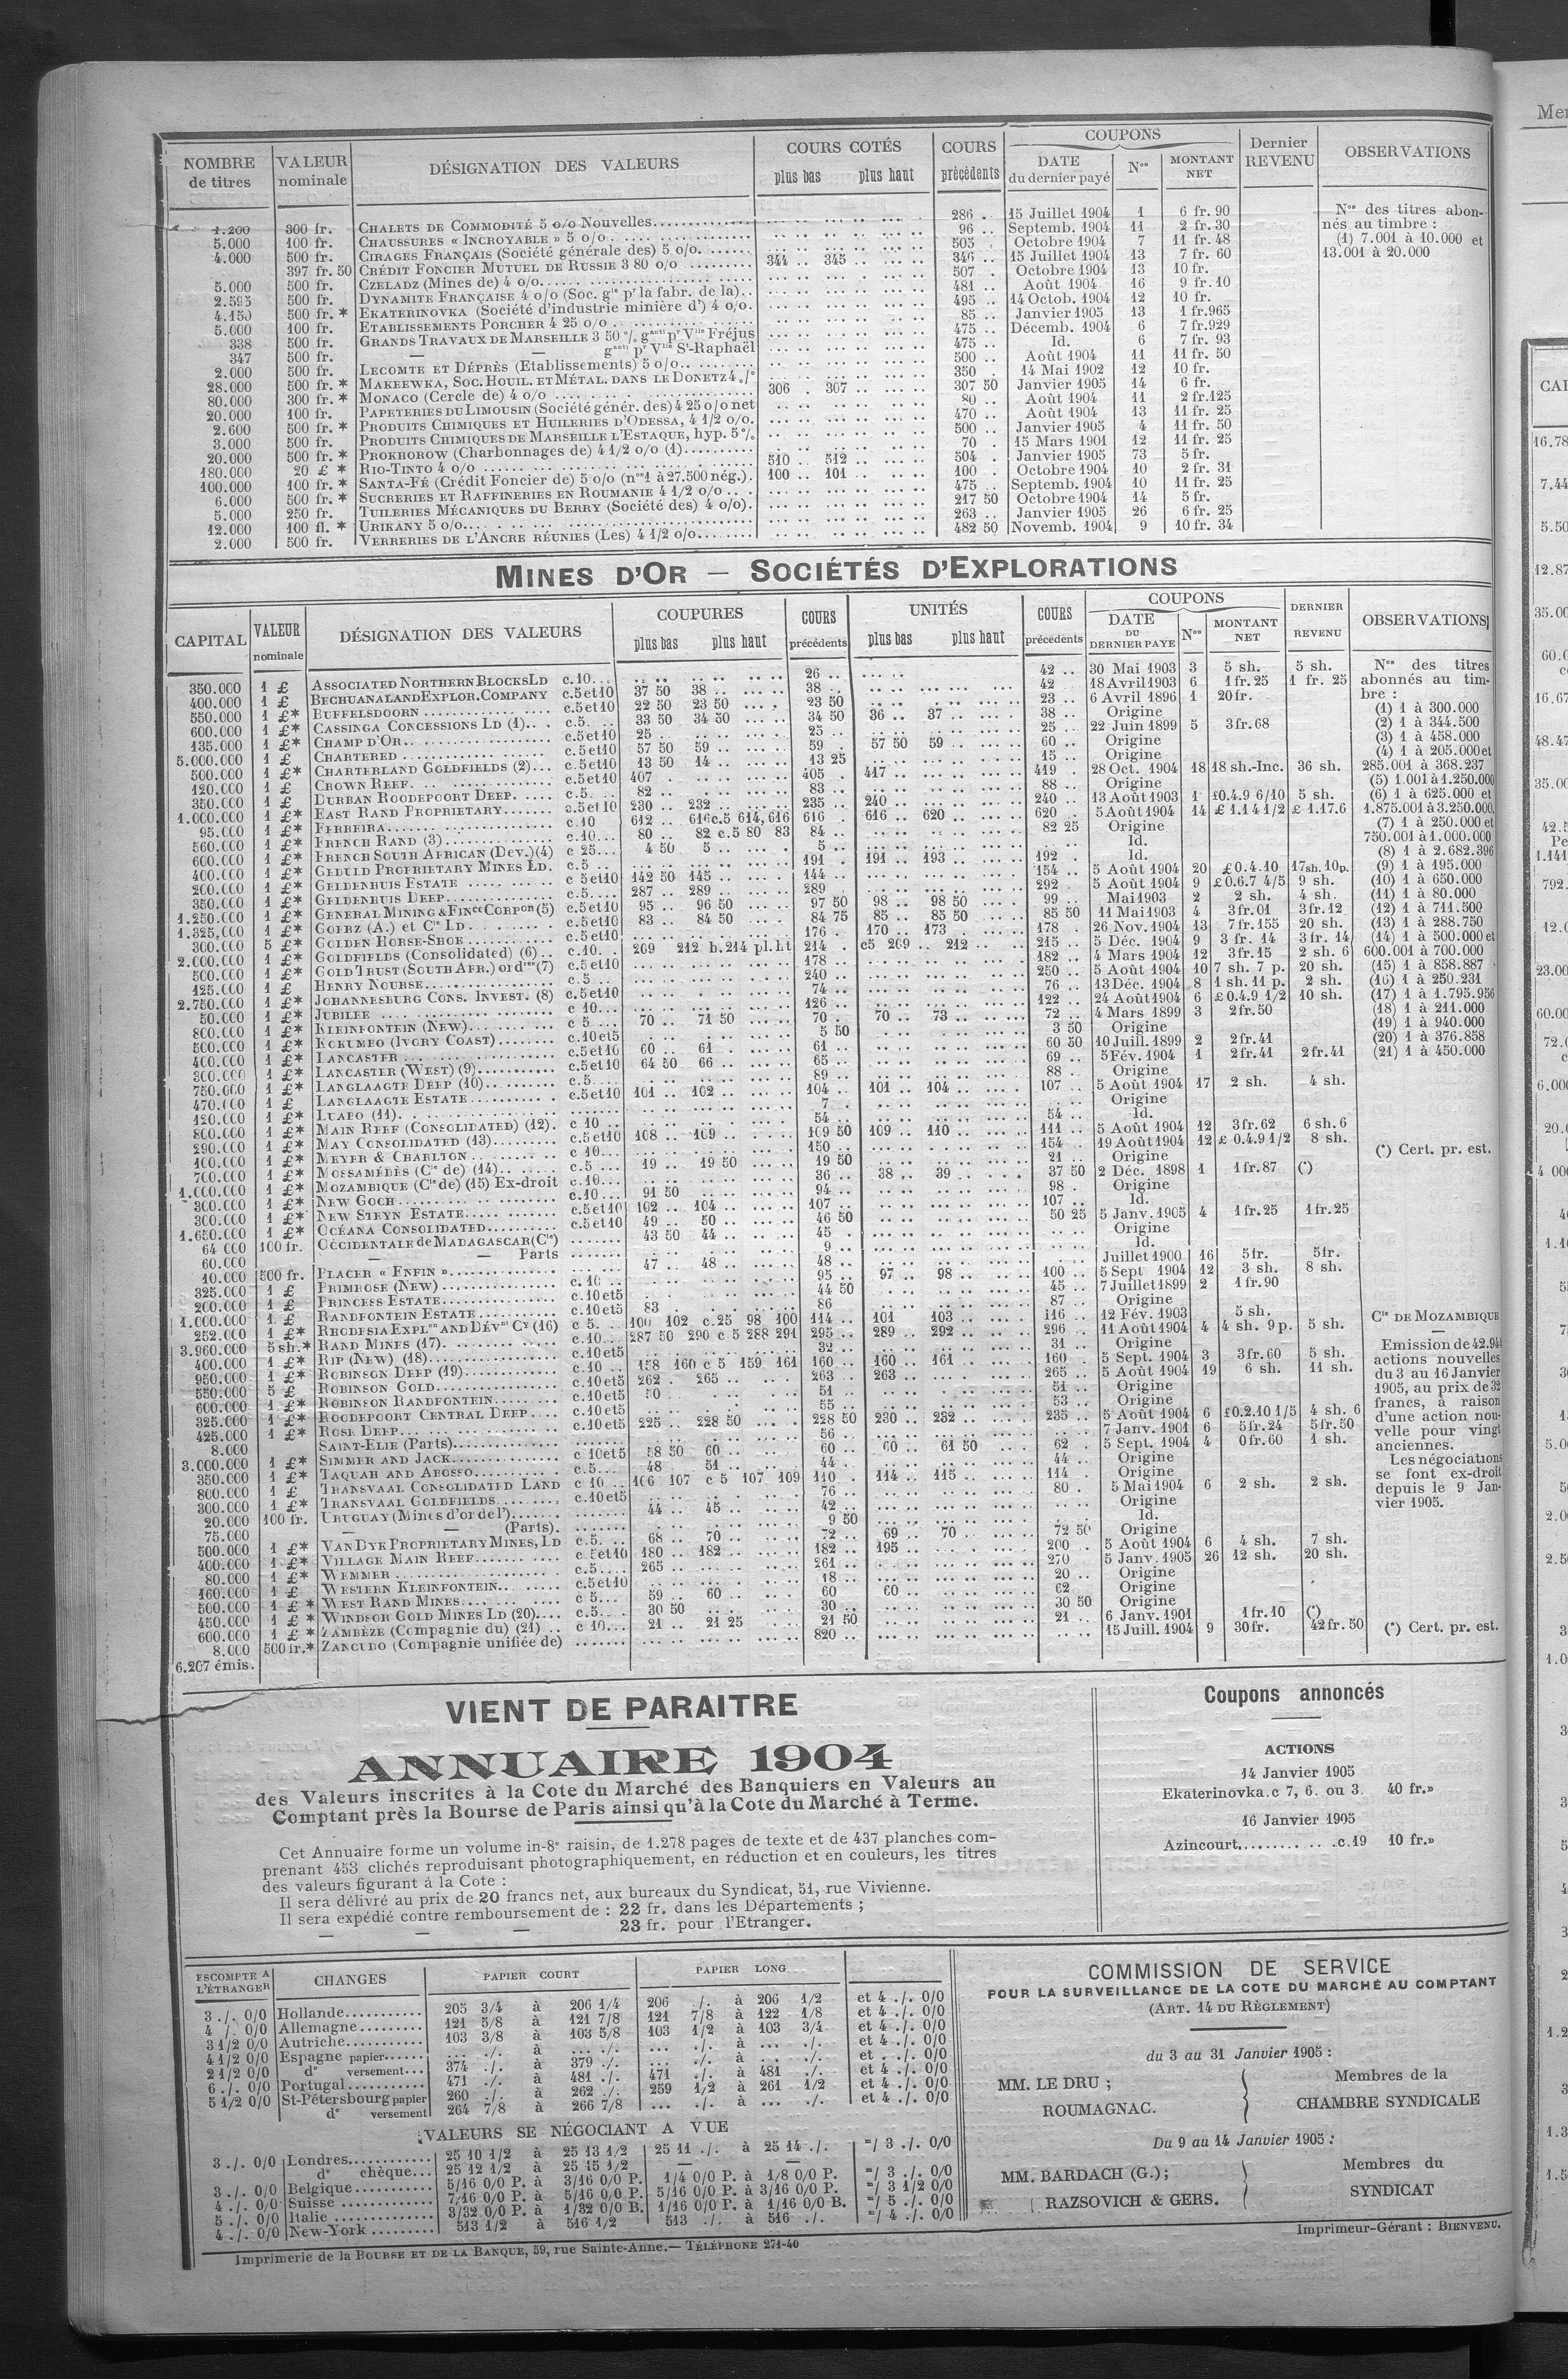 NOMBRE de titres | VALEUR nominale | DÉSIGNATION DES VALEURS | COURS COTÉS plus bas plus haut | COURS précédents | COUPONS DATE du dernier payé | Nos | MONTANT NET | Dernier REVENU | OBSERVATIONS
1.200 300 fr. CHALETS DE COMMODITÉ 5 o/o Nouvelles 286 .. 15 Juillet 1904 1 6 fr. 90
5.000 100 fr. CHAUSSURES « INCROYABLE » 5 o/o 96 .. Septemb. 1904 11 2 fr. 30
4.000 500 fr. CIRAGES FRANÇAIS (Société générale des) 5 o/o 505 . Octobre 1904 7 11 fr. 48
397 fr. 50 CRÉDIT FONCIER MUTUEL DE RUSSIE 3 80 o/o 344 .. 345 .. 346 .. 15 Juillet 1904 13 7 fr. 60
5.000 500 fr. CZELADZ (Mines de) 4 o/o 507 . Octobre 1904 13 10 fr.
2.595 500 fr. DYNAMITE FRANÇAISE 4 o/o (Soc. gle pr la fabr. de la) 481 .. Août 1904 16 9 fr. 10
4.150 500 fr. * EKATERINOVKA (Société d'industrie minière d') 4 o/o. 495 .. 14 Octob. 1904 12 10 fr.
5.000 100 fr. ETABLISSEMENTS PORCHER 4 25 o/o 85 .. Janvier 1905 13 1 fr.965
338 500 fr. GRANDS TRAVAUX DE MARSEILLE 3 50 % ganti pr Vlle Fréjus 475 .. Décemb. 1904 6 7 fr.929
347 500 fr. — — ganti pr Vlle St-Raphaël 475 .. Id. 6 7 fr. 93
2.000 500 fr. LECOMTE ET DÉPRÈS (Etablissements) 5 o/o 500 .. Août 1904 11 11 fr. 50
28.000 500 fr. * MAKEEWKA, SOC. HOUIL. ET MÉTAL. DANS LE DONETZ 4 % 350 . 14 Mai 1902 12 10 fr.
80.000 300 fr. * MONACO (Cercle de) 4 o/o 306 . 307 .. 307 50 Janvier 1905 14 6 fr.
20.000 100 fr. PAPETERIES DU LIMOUSIN (Société génér. des) 4 25 o/o net 80 .. Août 1904 11 2 fr.125
2.600 500 fr. * PRODUITS CHIMIQUES ET HUILERIES D'ODESSA, 4 1/2 o/o. 470 .. Août 1904 13 11 fr. 25
3.000 500 fr. PRODUITS CHIMIQUES DE MARSEILLE L'ESTAQUE, hyp. 5 % 500 .. Janvier 1905 4 11 fr. 50
20.000 500 fr. * PROKHOROW (Charbonnages de) 4 1/2 o/o (1) 70 . 15 Mars 1901 12 11 fr. 25
180.000 20 £ * RIO-TINTO 4 o/o 510 .. 512 .. 504 . Janvier 1905 73 5 fr.
100.000 100 fr. * SANTA-FÉ (Crédit Foncier de) 5 o/o (nos 1 à 27.500 nég.). 100 .. 101 .. 100 . Octobre 1904 10 2 fr. 31
6.000 500 fr. * SUCRERIES ET RAFFINERIES EN ROUMANIE 4 1/2 o/o 475 .. Septemb. 1904 10 11 fr. 25
5.000 250 fr. TUILERIES MÉCANIQUES DU BERRY (Société des) 4 o/o). 217 50 Octobre 1904 14 5 fr.
12.000 100 fl. * URIKANY 5 o/o 263 .. Janvier 1905 26 6 fr. 25
2.000 500 fr. VERRERIES DE L'ANCRE RÉUNIES (Les) 4 1/2 o/o 482 50 Novemb. 1904 9 10 fr. 34
Nos des titres abonnés au timbre :
(1) 7.001 à 10.000 et
13.001 à 20.000
MINES D'OR — SOCIÉTÉS D'EXPLORATIONS
CAPITAL | VALEUR nominale | DÉSIGNATION DES VALEURS | COUPURES plus bas plus haut | COURS précédents | UNITÉS plus bas plus haut | COURS précédents | COUPONS DATE DU DERNIER PAYÉ | Nos | MONTANT NET | DERNIER REVENU | OBSERVATIONS
350.000 1 £ ASSOCIATED NORTHERN BLOCKS LD c.10 26 .. 42 .. 30 Mai 1903 3 5 sh. 5 sh.
400.000 1 £ BECHUANALAND EXPLOR. COMPANY c.5et10 37 50 38 .. 38 .. 42 18 Avril 1903 6 1 fr. 25 1 fr. 25
550.000 1 £* BUFFELSDOORN c.5et10 22 50 23 50 23 50 23 .. 6 Avril 1896 1 20 fr.
600.000 1 £* CASSINGA CONCESSIONS LD (1) c.5 33 50 34 50 34 50 36 .. 37 .. 38 .. Origine
135.000 1 £* CHAMP D'OR c.5et10 25 .. 25 .. 25 .. 22 Juin 1899 5 3 fr.68
5.000.000 1 £ CHARTERED c.5et10 57 50 59 .. 59 . 57 50 59 .. 60 .. Origine
500.000 1 £* CHARTERLAND GOLDFIELDS (2) c.5et10 13 50 14 .. 13 25 15 .. Origine
120.000 1 £ CROWN REEF c.5et10 407 . 405 . 417 .. 419 . 28 Oct. 1904 18 18 sh.-Inc. 36 sh.
350.000 1 £ DURBAN ROODEPOORT DEEP c.5 82 .. 83 .. 88 .. Origine
1.000.000 1 £* EAST RAND PROPRIETARY c.5et10 230 .. 232 .. 235 .. 240 .. 240 .. 13 Août 1903 1 £0.4.9 6/10 5 sh.
95.000 1 £* FERREIRA c.10 612 .. 616 c.5 614,616 616 . 616 .. 620 .. 620 .. 5 Août 1904 14 £ 1.14 1/2 £ 1.17.6
560.000 1 £* FRENCH RAND (3) c.10 80 .. 82 c.5 80 83 84 .. 82 25 Origine
600.000 1 £* FRENCH SOUTH AFRICAN (Dev.) (4) c 25 4 50 5 .. 5 .. Id.
400.000 1 £* GEDULD PROPRIETARY MINES LD. c.5 191 . 191 .. 193 .. 192 . Id.
200.000 1 £* GELDENHUIS ESTATE c 5et10 142 50 145 .. 144 .. 154 .. 5 Août 1904 20 £0.4.10 17sh.10p.
350.000 1 £* GELDENHUIS DEEP c.5 287 .. 289 .. 289 292 . 5 Août 1904 9 £0.6.7 4/5 9 sh.
1.250.000 1 £* GENERAL MINING & FINce CORPon (5) c.5et10 95 .. 96 50 97 50 98 .. 98 50 99 .. Mai 1903 2 2 sh. 4 sh.
1.325.000 1 £* GOERZ (A.) et Cie LD c.5et10 83 .. 84 50 84 75 85 .. 85 50 85 50 11 Mai 1903 4 3 fr. 01 3 fr. 12
300.000 5 £* GOLDEN HORSE-SHOE c.5et10 176 . 170 .. 173 . 178 . 26 Nov. 1904 13 7 fr. 155 20 sh.
2.000.000 1 £* GOLDFIELDS (Consolidated) (6) c.10 209 212 b.214 pl.ht 214 . c5 209 .. 212 .. 215 .. 5 Déc. 1904 9 3 fr. 14 3 fr. 14
500.000 1 £* GOLD TRUST (SOUTH AFR.) ordres (7) c.5et10 178 .. 182 .. 4 Mars 1904 12 3 fr. 15 2 sh. 6
125.000 1 £ HENRY NOURSE c 5 240 .. 250 .. 5 Août 1904 10 7 sh. 7 p. 20 sh.
2.750.000 1 £* JOHANNESBURG CONS. INVEST. (8) c.5et10 74 .. 76 .. 13 Déc. 1904 8 1 sh. 11 p. 2 sh.
50.000 1 £* JUBILEE c 10 126 .. 122 .. 24 Août 1904 6 £0.4.9 1/2 10 sh.
800.000 1 £* KLEINFONTEIN (NEW) c 5 70 .. 71 50 70 . 70 .. 73 .. 72 .. 4 Mars 1899 3 2 fr. 50
500.000 1 £* KOKUMBO (IVORY COAST) c.10et5 5 50 3 50 Origine
400.000 1 £* LANCASTER c.5et10 60 .. 61 .. 61 .. 60 50 10 Juill. 1899 2 2 fr. 41
300.000 1 £* LANCASTER (WEST) (9) c.5et10 64 50 66 .. 65 .. 69 .. 5 Fév. 1904 1 2 fr. 41 2 fr. 41
750.000 1 £* LANGLAAGTE DEEP (10) c.5 89 .. 88 .. Origine
470.000 1 £ LANGLAAGTE ESTATE c.5et10 101 .. 102 .. 104 .. 101 .. 104 .. 107 .. 5 Août 1904 17 2 sh. 4 sh.
120.000 1 £* LUABO (11) 7 .. Origine
800.000 1 £* MAIN REEF (CONSOLIDATED) (12) c 10 54 .. 54 .. Id.
290.000 1 £* MAY CONSOLIDATED (13) c.5et10 108 .. 109 .. 109 50 109 .. 110 .. 111 .. 5 Août 1904 12 3 fr. 62 6 sh. 6
100.000 1 £* MEYER & CHARLTON c 10 150 .. 154 .. 19 Août 1904 12 £ 0.4.9 1/2 8 sh.
700.000 1 £* MOSSAMÉDÈS (Cie de) (14) c.5 19 .. 19 50 19 50 21 .. Origine
1.000.000 1 £* MOZAMBIQUE (Cie de) (15) Ex-droit c.10 36 .. 38 .. 39 .. 37 50 2 Déc. 1898 1 1 fr. 87 (*)
300.000 1 £* NEW GOCH c.10 91 50 94 .. 98 . Origine
300.000 1 £* NEW STEYN ESTATE c.5et10 102 .. 104 .. 107 .. 107 .. Id.
1.650.000 1 £* OCÉANA CONSOLIDATED c.5et10 49 .. 50 .. 46 50 50 25 5 Janv. 1905 4 1 fr. 25 1 fr. 25
64 000 100 fr. OCCIDENTALE de MADAGASCAR (Cie) 43 50 44 .. 45 . Origine
60.000 — — Parts 9 .. Id.
10.000 500 fr. PLACER « ENFIN » 47 .. 48 .. 48 .. Juillet 1900 16 5 fr. 5 fr.
325.000 1 £ PRIMROSE (NEW) c. 10 95 .. 97 .. 98 .. 100 .. 5 Sept 1904 12 3 sh. 8 sh.
200.000 1 £ PRINCESS ESTATE c.10et5 44 50 45 .. 7 Juillet 1899 2 1 fr. 90
1.000.000 1 £ RANDFONTEIN ESTATE c.10et5 83 . 86 87 .. Origine
252.000 1 £* RHODESIA EXPLon AND DÉVmt Cy (16) c 5 100 102 c.25 98 100 114 .. 101 103 .. 116 .. 12 Fév. 1903 5 sh.
3.960.000 5 sh.* RAND MINES (17) c.10 287 50 290 c 5 288 291 295 .. 289 .. 292 .. 296 .. 11 Août 1904 4 4 sh. 9 p. 5 sh.
400.000 1 £* RIP (NEW) (18) c.10et5 32 .. 31 .. Origine
950.000 1 £* ROBINSON DEEP (19) c.10 158 160 c 5 159 161 160 .. 160 .. 161 .. 160 . 5 Sept. 1904 3 3 fr. 60 5 sh.
550.000 5 £ ROBINSON GOLD c.10et5 262 . 265 .. 263 .. 263 .. 265 .. 5 Août 1904 19 6 sh. 11 sh.
600.000 1 £* ROBINSON RANDFONTEIN c.10et5 51 .. 51 .. Origine
325.000 1 £* ROODEPOORT CENTRAL DEEP c.10et5 55 .. 53 .. Origine
425.000 1 £* ROSE DEEP c.10et5 225 .. 228 50 228 50 230 .. 232 .. 235 .. 5 Août 1904 6 £0.2.10 1/5 4 sh. 6
8.000 SAINT-ELIE (Parts) 56 .. 7 Janv. 1901 6 5 fr. 24 5 fr. 50
3.000.000 1 £* SIMMER AND JACK c 10et5 58 50 60 .. 60 .. 60 .. 61 50 62 . 5 Sept. 1904 4 0 fr. 60 1 sh.
350.000 1 £* TAQUAH AND ABOSSO c.5 48 . 51 .. 44 .. 44 .. Origine
800.000 1 £ TRANSVAAL CONSOLIDATED LAND c 10 106 107 c 5 107 109 110 . 114 .. 115 .. 114 . Origine
300.000 1 £* TRANSVAAL GOLDFIELDS c.10et5 76 .. 80 . 5 Mai 1904 6 2 sh. 2 sh.
20.000 100 fr. URUGUAY (Mines d'or de l') 44 .. 45 .. 42 .. Origine
75.000 — — (Parts). 9 50 Id.
500.000 1 £* VAN DYK PROPRIETARY MINES, LD c.5 68 .. 70 .. 72 .. 69 .. 70 .. 72 50 Origine
400.000 1 £* VILLAGE MAIN REEF c.5et10 180 .. 182 .. 182 .. 195 .. 200 . 5 Août 1904 6 4 sh. 7 sh.
80.000 1 £* WEMMER c.5 265 .. 261 .. 270 5 Janv. 1905 26 12 sh. 20 sh.
160.000 1 £ WESTERN KLEINFONTEIN c.5et10 18 .. 20 .. Origine
500.000 1 £ * WEST RAND MINES c 5 59 .. 60 .. 60 60 .. 62 Origine
450.000 1 £ * WINDSOR GOLD MINES LD (20) c.5 30 50 30 .. 30 50 Origine
600.000 1 £ * ZAMBÈZE (Compagnie du) (21) c 10 21 .. 21 25 21 50 21 .. 6 Janv. 1901 1 fr. 10 (*)
8.000 500 fr.* ZANCUDO (Compagnie unifiée de) 820 .. 15 Juill. 1904 9 30 fr. 42 fr. 50
6.207 émis.
Nos des titres
abonnés au timbre :
(1) 1 à 300.000
(2) 1 à 344.500
(3) 1 à 458.000
(4) 1 à 205.000 et
285.001 à 368.237
(5) 1.001 à 1.250.000
(6) 1 à 625.000 et
1.875.001 à 3.250.000
(7) 1 à 250.000 et
750.001 à 1.000.000
(8) 1 à 2.682.396
(9) 1 à 195.000
(10) 1 à 650.000
(11) 1 à 80.000
(12) 1 à 711.500
(13) 1 à 288.750
(14) 1 à 500.000 et
600.001 à 700.000
(15) 1 à 858.887
(16) 1 à 250.231
(17) 1 à 1.795.956
(18) 1 à 211.000
(19) 1 à 940.000
(20) 1 à 376.858
(21) 1 à 450.000
(*) Cert. pr. est.
Cie DE MOZAMBIQUE
Emission de 42.944
actions nouvelles
du 3 au 16 Janvier
1905, au prix de 32
francs, à raison
d'une action nouvelle
pour vingt
anciennes.
Les négociations
se font ex-droit
depuis le 9 Janvier
1905.
(*) Cert. pr. est.
VIENT DE PARAITRE
ANNUAIRE 1904
des Valeurs inscrites à la Cote du Marché des Banquiers en Valeurs au
Comptant près la Bourse de Paris ainsi qu'à la Cote du Marché à Terme.
Cet Annuaire forme un volume in-8° raisin, de 1.278 pages de texte et de 437 planches com-
prenant 453 clichés reproduisant photographiquement, en réduction et en couleurs, les titres
des valeurs figurant à la Cote :
Il sera délivré au prix de 20 francs net, aux bureaux du Syndicat, 51, rue Vivienne.
Il sera expédié contre remboursement de : 22 fr. dans les Départements ;
— — — 23 fr. pour l'Etranger.
Coupons annoncés
ACTIONS
14 Janvier 1905
Ekaterinovka.c 7, 6. ou 3. 40 fr.»
16 Janvier 1905
Azincourt.......... .. .c.19 10 fr.»
ESCOMPTE A L'ÉTRANGER | CHANGES | PAPIER COURT | PAPIER LONG
3 ./. 0/0 Hollande 205 3/4 à 206 1/4 206 ./. à 206 1/2 et 4 ./. 0/0
4 ./. 0/0 Allemagne 121 5/8 à 121 7/8 121 7/8 à 122 1/8 et 4 ./. 0/0
3 1/2 0/0 Autriche 103 3/8 à 103 5/8 103 1/2 à 103 3/4 et 4 ./. 0/0
4 1/2 0/0 Espagne papier ... ./. à ... ./. ... ./. à ... ./. et 4 ./. 0/0
2 1/2 0/0 d° versement 374 ./. à 379 ./. ... ./. à ... ./. et . ./. 0/0
6 ./. 0/0 Portugal 471 ./. à 481 ./. 471 ./. à 481 ./. et 4 ./. 0/0
5 1/2 0/0 St-Pétersbourg papier 260 ./. à 262 ./. 259 1/2 à 261 1/2 et 4 ./. 0/0
d° versement 264 7/8 à 266 7/8 ... ./. à ... ./. et 4 ./. 0/0
VALEURS SE NÉGOCIANT A VUE
3 ./. 0/0 Londres 25 10 1/2 à 25 13 1/2 25 11 ./. à 25 14 ./. =/ 3 ./. 0/0
d° chèque 25 12 1/2 à 25 15 1/2 — —
3 ./. 0/0 Belgique 5/16 0/0 P. à 3/16 0/0 P. 1/4 0/0 P. à 1/8 0/0 P. =/ 3 ./. 0/0
4 ./. 0/0 Suisse 7/16 0/0 P. à 5/16 0/0 P. 5/16 0/0 P. à 3/16 0/0 P. =/ 3 1/2 0/0
5 ./. 0/0 Italie 3/32 0/0 P. à 1/32 0/0 B. 1/16 0/0 P. à 1/16 0/0 B. =/ 5 ./. 0/0
4 ./. 0/0 New-York 513 1/2 à 516 1/2 513 ./. à 516 ./. =/ 4 ./. 0/0
COMMISSION DE SERVICE
POUR LA SURVEILLANCE DE LA COTE DU MARCHÉ AU COMPTANT
(ART. 14 DU RÈGLEMENT)
du 3 au 31 Janvier 1905 :
MM. LE DRU ;
ROUMAGNAC.
Membres de la
CHAMBRE SYNDICALE
Du 9 au 14 Janvier 1905 :
MM. BARDACH (G.) ;
RAZSOVICH & GERS.
Membres du
SYNDICAT
Imprimeur-Gérant : BIENVENU.
Imprimerie de la BOURSE ET DE LA BANQUE, 59, rue Sainte-Anne.— TÉLÉPHONE 271-40